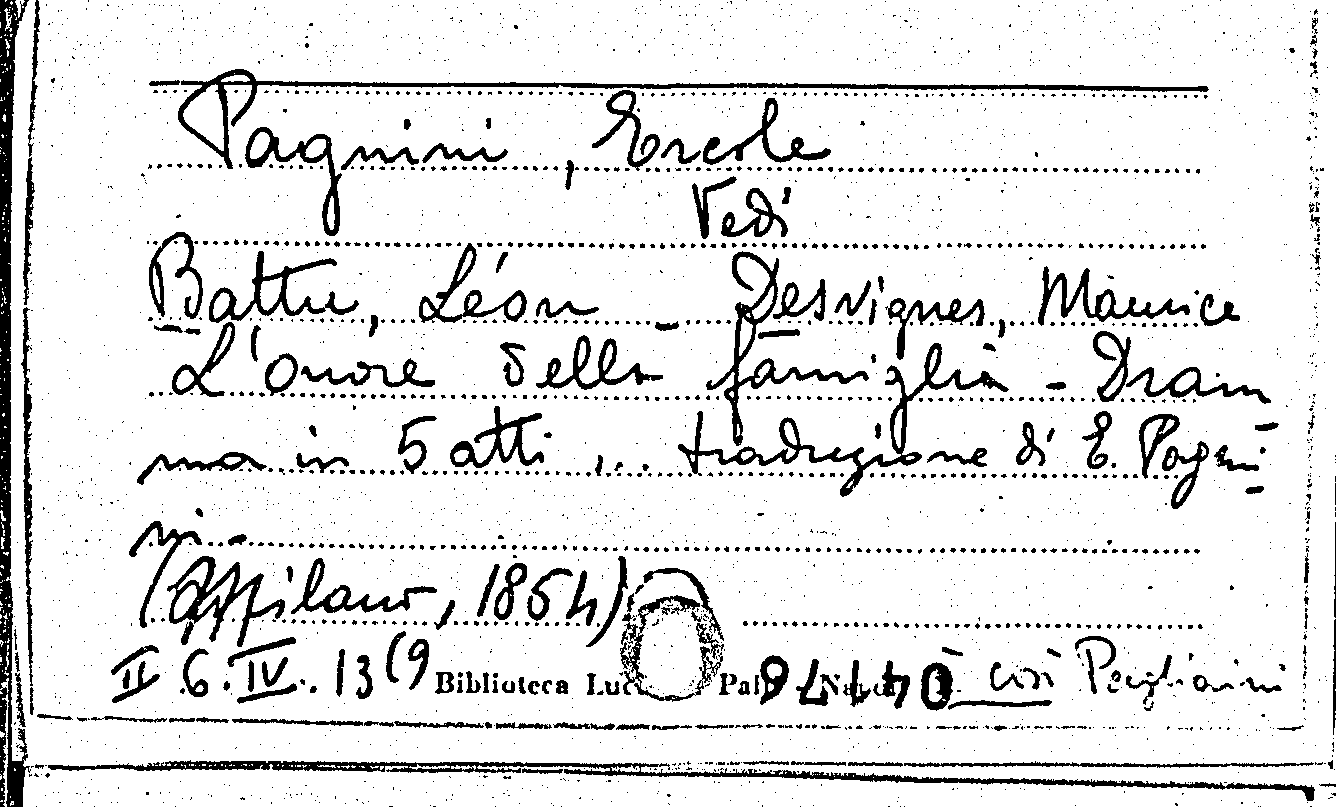 Pagnini, Ercole
Vedi
Battu, Léon - Desvignes, Maurice
L'onore della famiglia - Dram
ma in 5 atti ... traduzione di E. Pagni
ni -
Milano, 1864)
II 6. IV. 13 (9 Biblioteca Luc Pal così Pagliaini